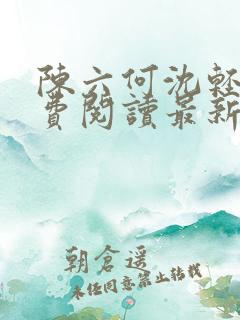 陳六何沈輕
費閱讀最新
朝倉遥
未经同意禁止转载